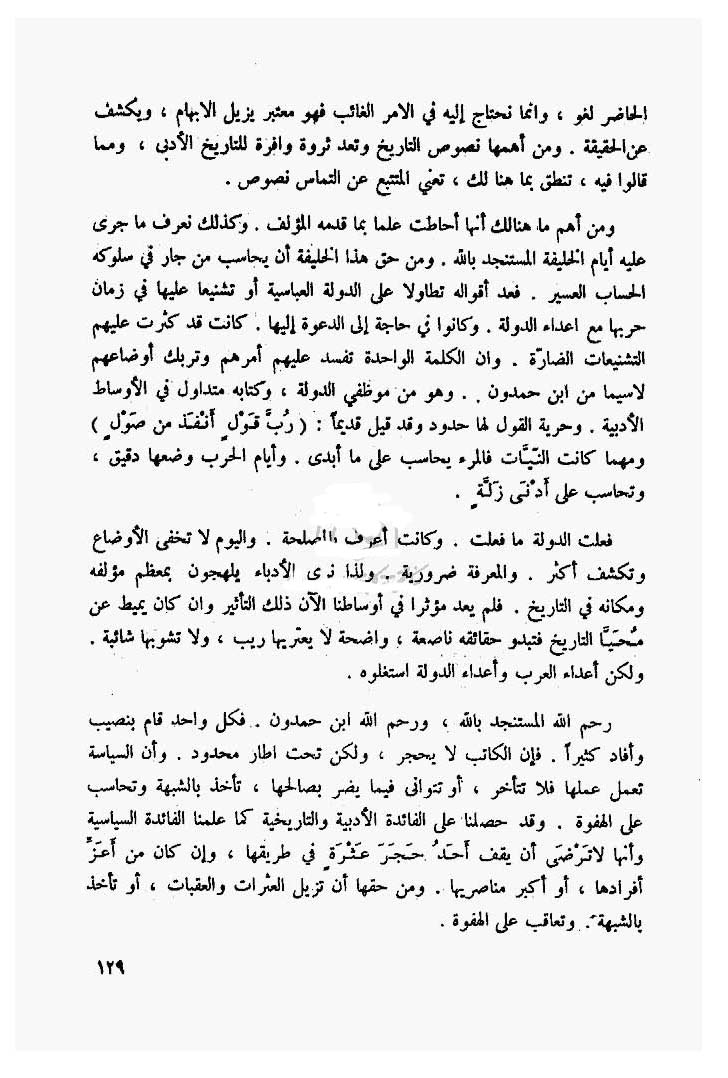 الحاضر لغو ، وانما نحتاج إليه في الامر الغائب فهو معتبر يزيل الابهام ، ويكشف
عن الحقيقة . ومن أهمها نصوص التاريخ وتعد ثروة وافرة للتاريخ الأدبى ، ومما
قالوا فيه ، تنطق بما هنا لك ، تعني المتتبع عن التماس نصوص .
ومن أهم ما هنالك أنها أحاطت علما بما قدمه المؤلف . وكذلك نعرف ما جرى
عليه أيام الخليفة المستنجد بالله . ومن حق هذا الخليفة أن يحاسب من جار في سلوكه
الحساب العسير . فعد أقواله تطاولا على الدولة العباسية أو تشنيعا عليها في زمان
حربها مع اعداء الدولة . وكانوا في حاجة إلى الدعوة إليها . كانت قد كثرت عليهم
التشنيعات الضارّة . وان الكلمة الواحدة تفسد عليهم أمرهم وتربك أوضاعهم
لاسيما من ابن حمدون . . وهو من موظفي الدولة ، وكتابه متداول في الأوساط
الأدبية . وحرية القول لها حدود وقد قيل قديماً : ( رُبَّ قَوْلٍ أَنْفَذ من صَوْلٍ )
ومهما كانت النّيَّات فالمرء يحاسب على ما أبدى . وأيام الحرب وضعها دقيق ،
وتحاسب على أَدْنَى زَلَّةٍ .
فعلت الدولة ما فعلت . وكانت أعرف بالمصلحة . واليوم لا تخفى الأوضاع
وتكشف أكثر . والمعرفة ضرورية . ولذا نرى الأدباء يلهجون بمعظم مؤلفه
ومكانه في التاريخ . فلم يعد مؤثرا في أوساطنا الآن ذلك التأثير وان كان يميط عن
مُحَيَّا التاريخ فتبدو حقائقه ناصعة ، واضحة لا يعتريها ريب ، ولا تشوبها شائبة .
ولكن أعداء العرب وأعداء الدولة استغلوه .
رحم الله المستنجد بالله ، ورحم الله ابن حمدون . فكل واحد قام بنصيب
وأفاد كثيراً . فإن الكاتب لا يحجر ، ولكن تحت اطار محدود . وأن السياسة
تعمل عملها فلا تتأخر ، أو تتوانى فيما يضر بصالحها ، تأخذ بالشبهة وتحاسب
على الهفوة . وقد حصلنا على الفائدة الأدبية والتاريخية كما علمنا الفائدة السياسية
وأنها لاتَرْضَى أن يقف أَحَدُ حَجَرَ عَثْرَةٍ في طريقها ، وإن كان من أَعَزَّ
أفرادها ، أو أكبر مناصريها . ومن حقها أن تزيل العثرات والعقبات ، أو تأخذ
بالشبهة . وتعاقب على الهفوة .
١٢٩